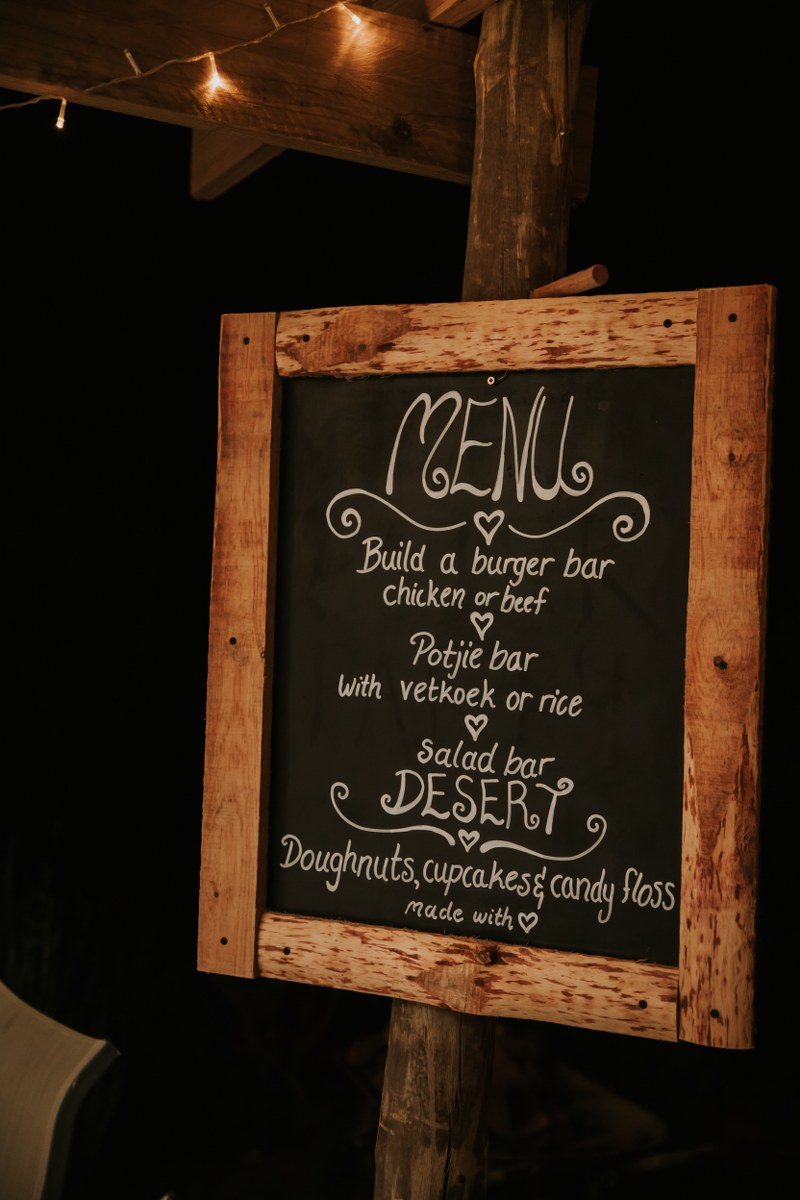 MENU
Build a burger bar
chicken or beef
Potjie bar
with vetkoek or rice
salad bar
DESERT
Doughnuts, cupcakes & candy floss
made with